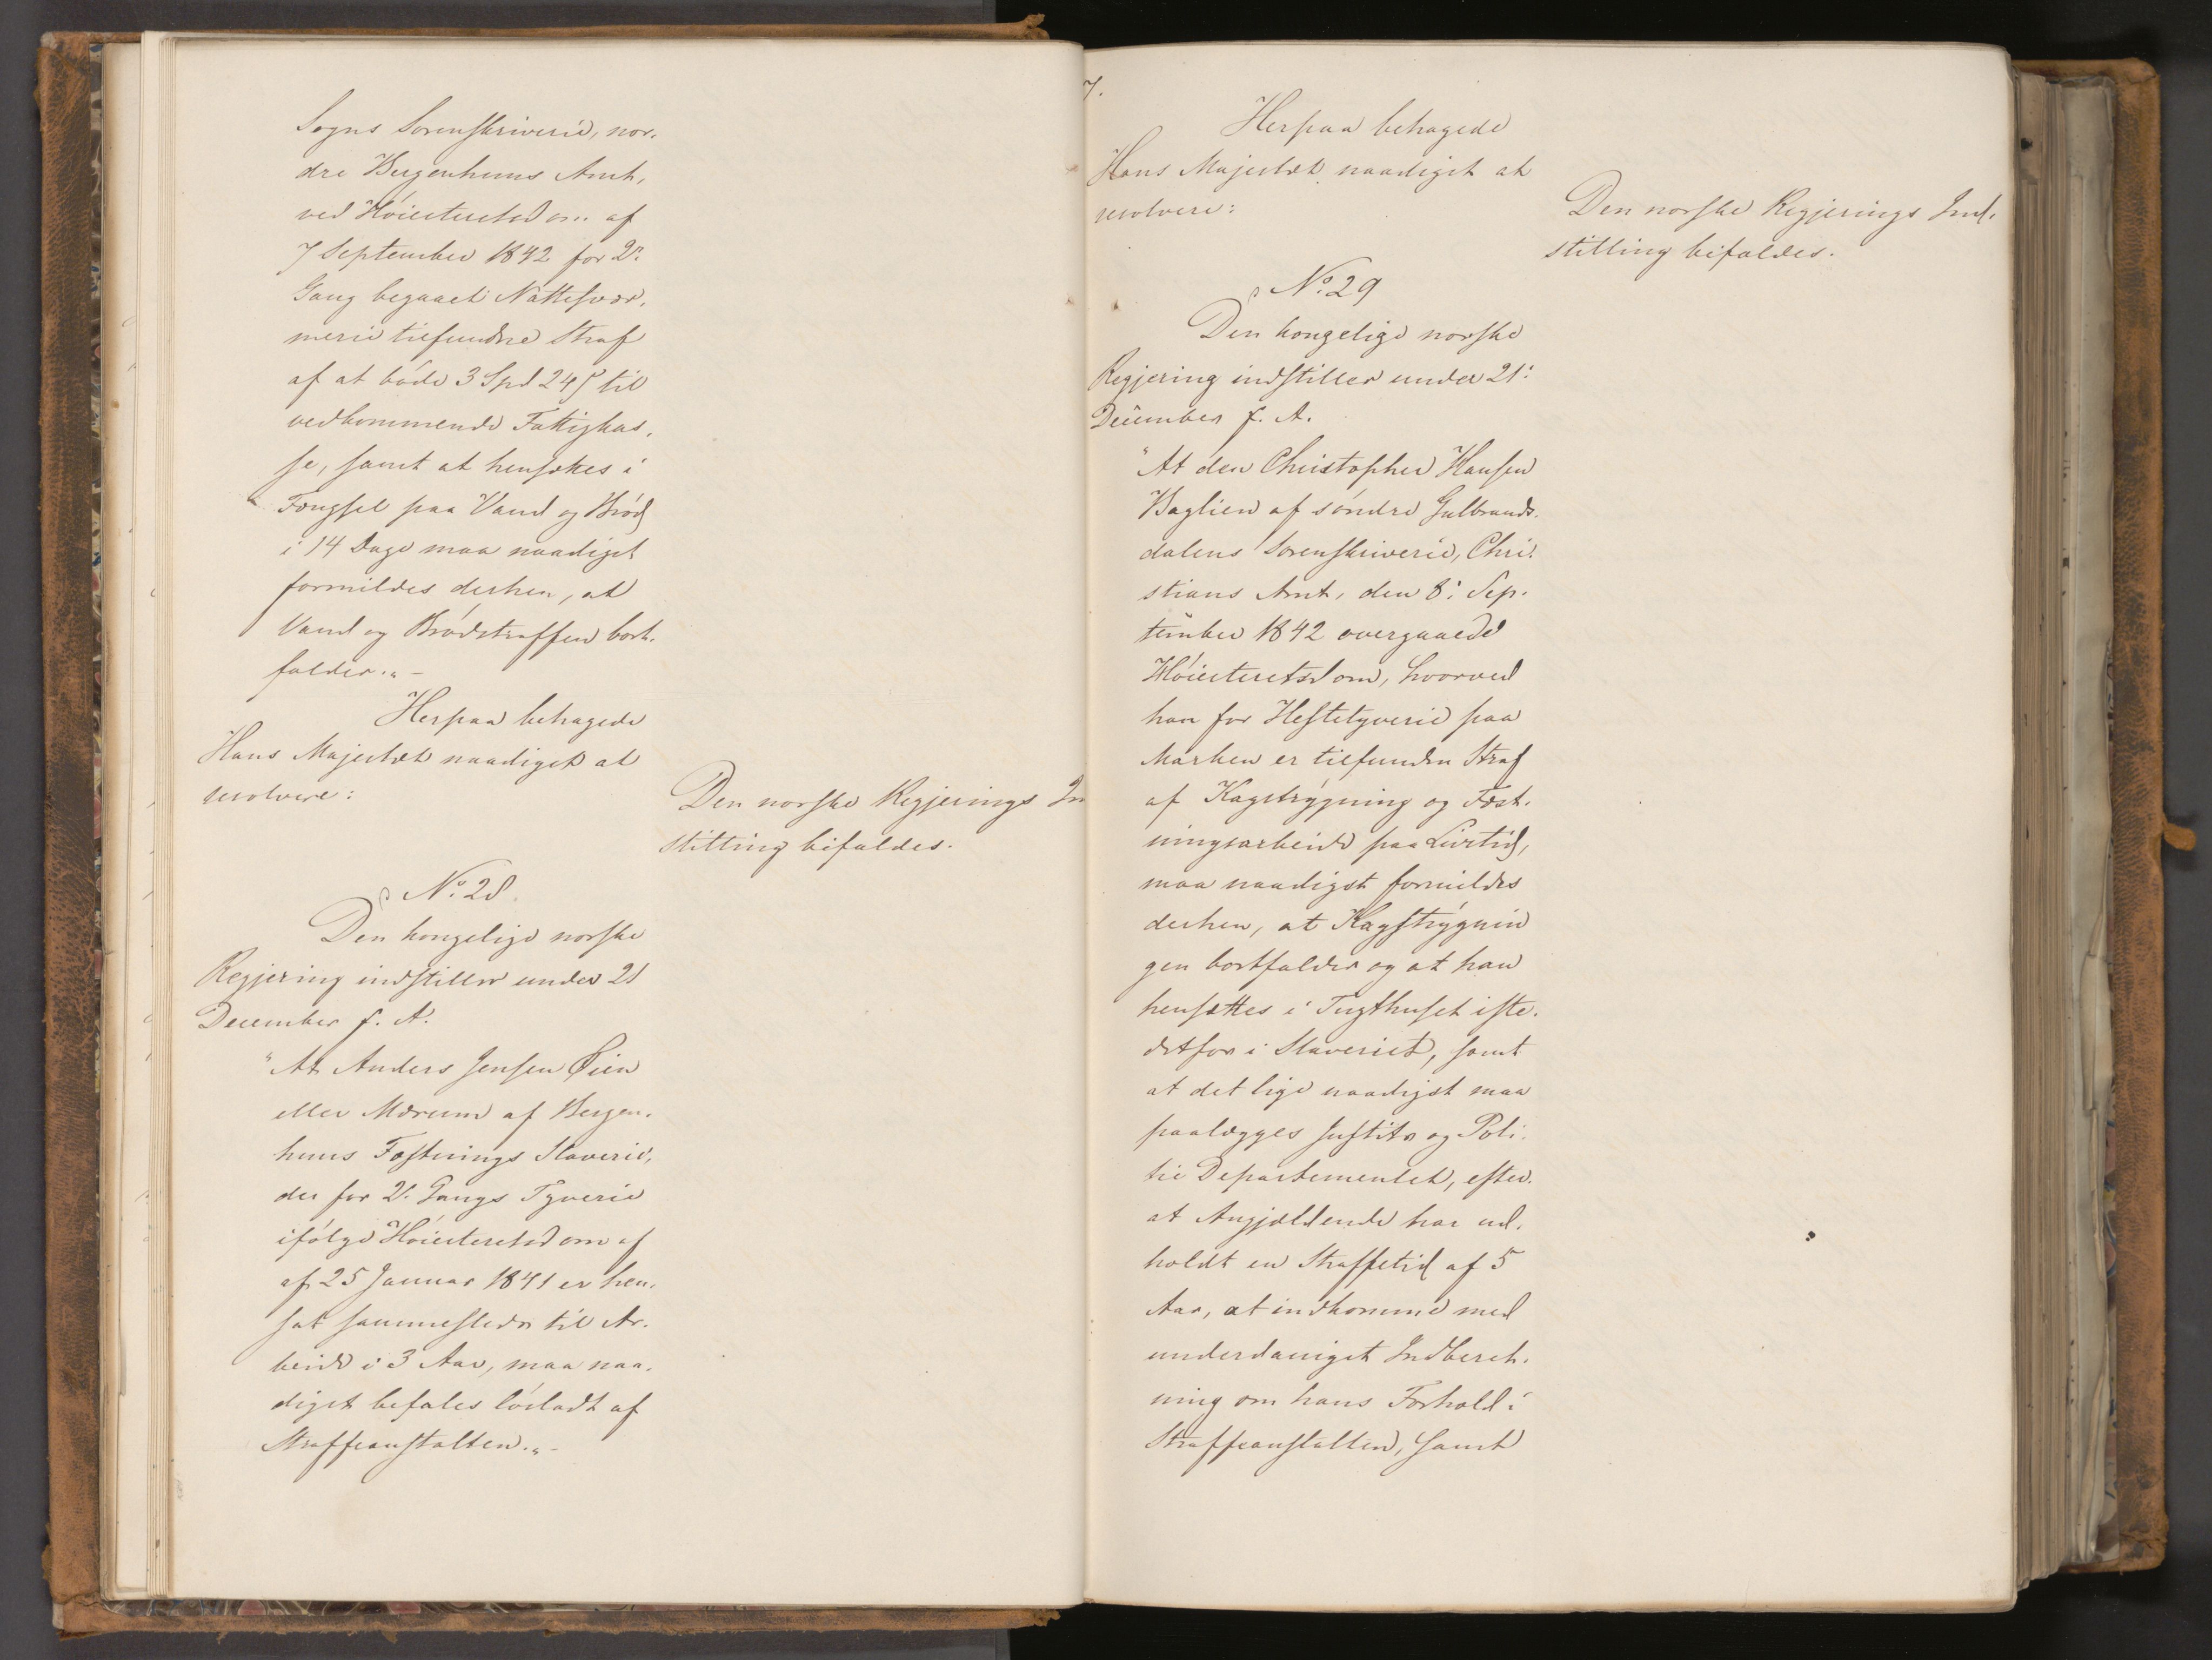 Sogns Sorenskriverie, nor-
dre Bergenhuus Amt,
ved Høiesteretsdom af
7 September 1842 for 2.
Gang begaaet Nattesvær-
merie tilfundne Straf
af at bøde 3 Spd 24 ß til
vedkommende Fattigkas-
se, samt at hensættes i
Fængsel paa Vand og Brød
i 14 Dage maa naadigst
formildes derhen, at
Vand og Brødstraffen bort-
falder.„ -
Herpaa behagede
Hans Majestæt naadigst at
resolvere:
Den norske Regjerings In
stilling bifaldes.
No. 28.
Den kongelige norske
Regjering indstiller under 21
December f. A.
"At Anders Jensen Øien
eller Mærum af Bergen-
huus Fæstnings Slaverie,
der for 2. Gangs Tyverie
ifølge Høiesteretsdom af
af 25 Januar 1841 er hen-
sat sammesteds til Ar-
beide i 3 Aar, maa naa-
digst befales løsladt af
Straffeanstalten.„ -
7.
Herpaa behagede
Hans Majestæt naadigst at
resolvere:
Den norske Regjerings Ind-
stilling bifaldes.
No. 29
Den kongelige norske
Regjering indstiller under 21.
December f. A.
"At den Christopher Hansen
Baglien af søndre Gulbrands-
dalens Sorenskriverie, Chri-
stians Amt, den 8. Sep-
tember 1842 overgaaede
Høiesteretsdom, hvorved
han for Hestetyverie paa
Marken er tilfunden Straf
af Kagstrygning og Fæst-
ningsarbeide paa Livstid,
maa naadigst formildes
derhen, at Kagstrygnin
gen bortfalder og at han
hensættes i Tugthuset iste-
detfor i Slaveriet, samt
at det lige naadigst maa
paalægges Justits og Poli-
tie Departementet, efter-
at Angjældende har ud-
holdt en Straffetid af 5
Aar, at indkomme med
underdanigst Indberet-
ning om hans Forhold i
Straffeanstalten, samt